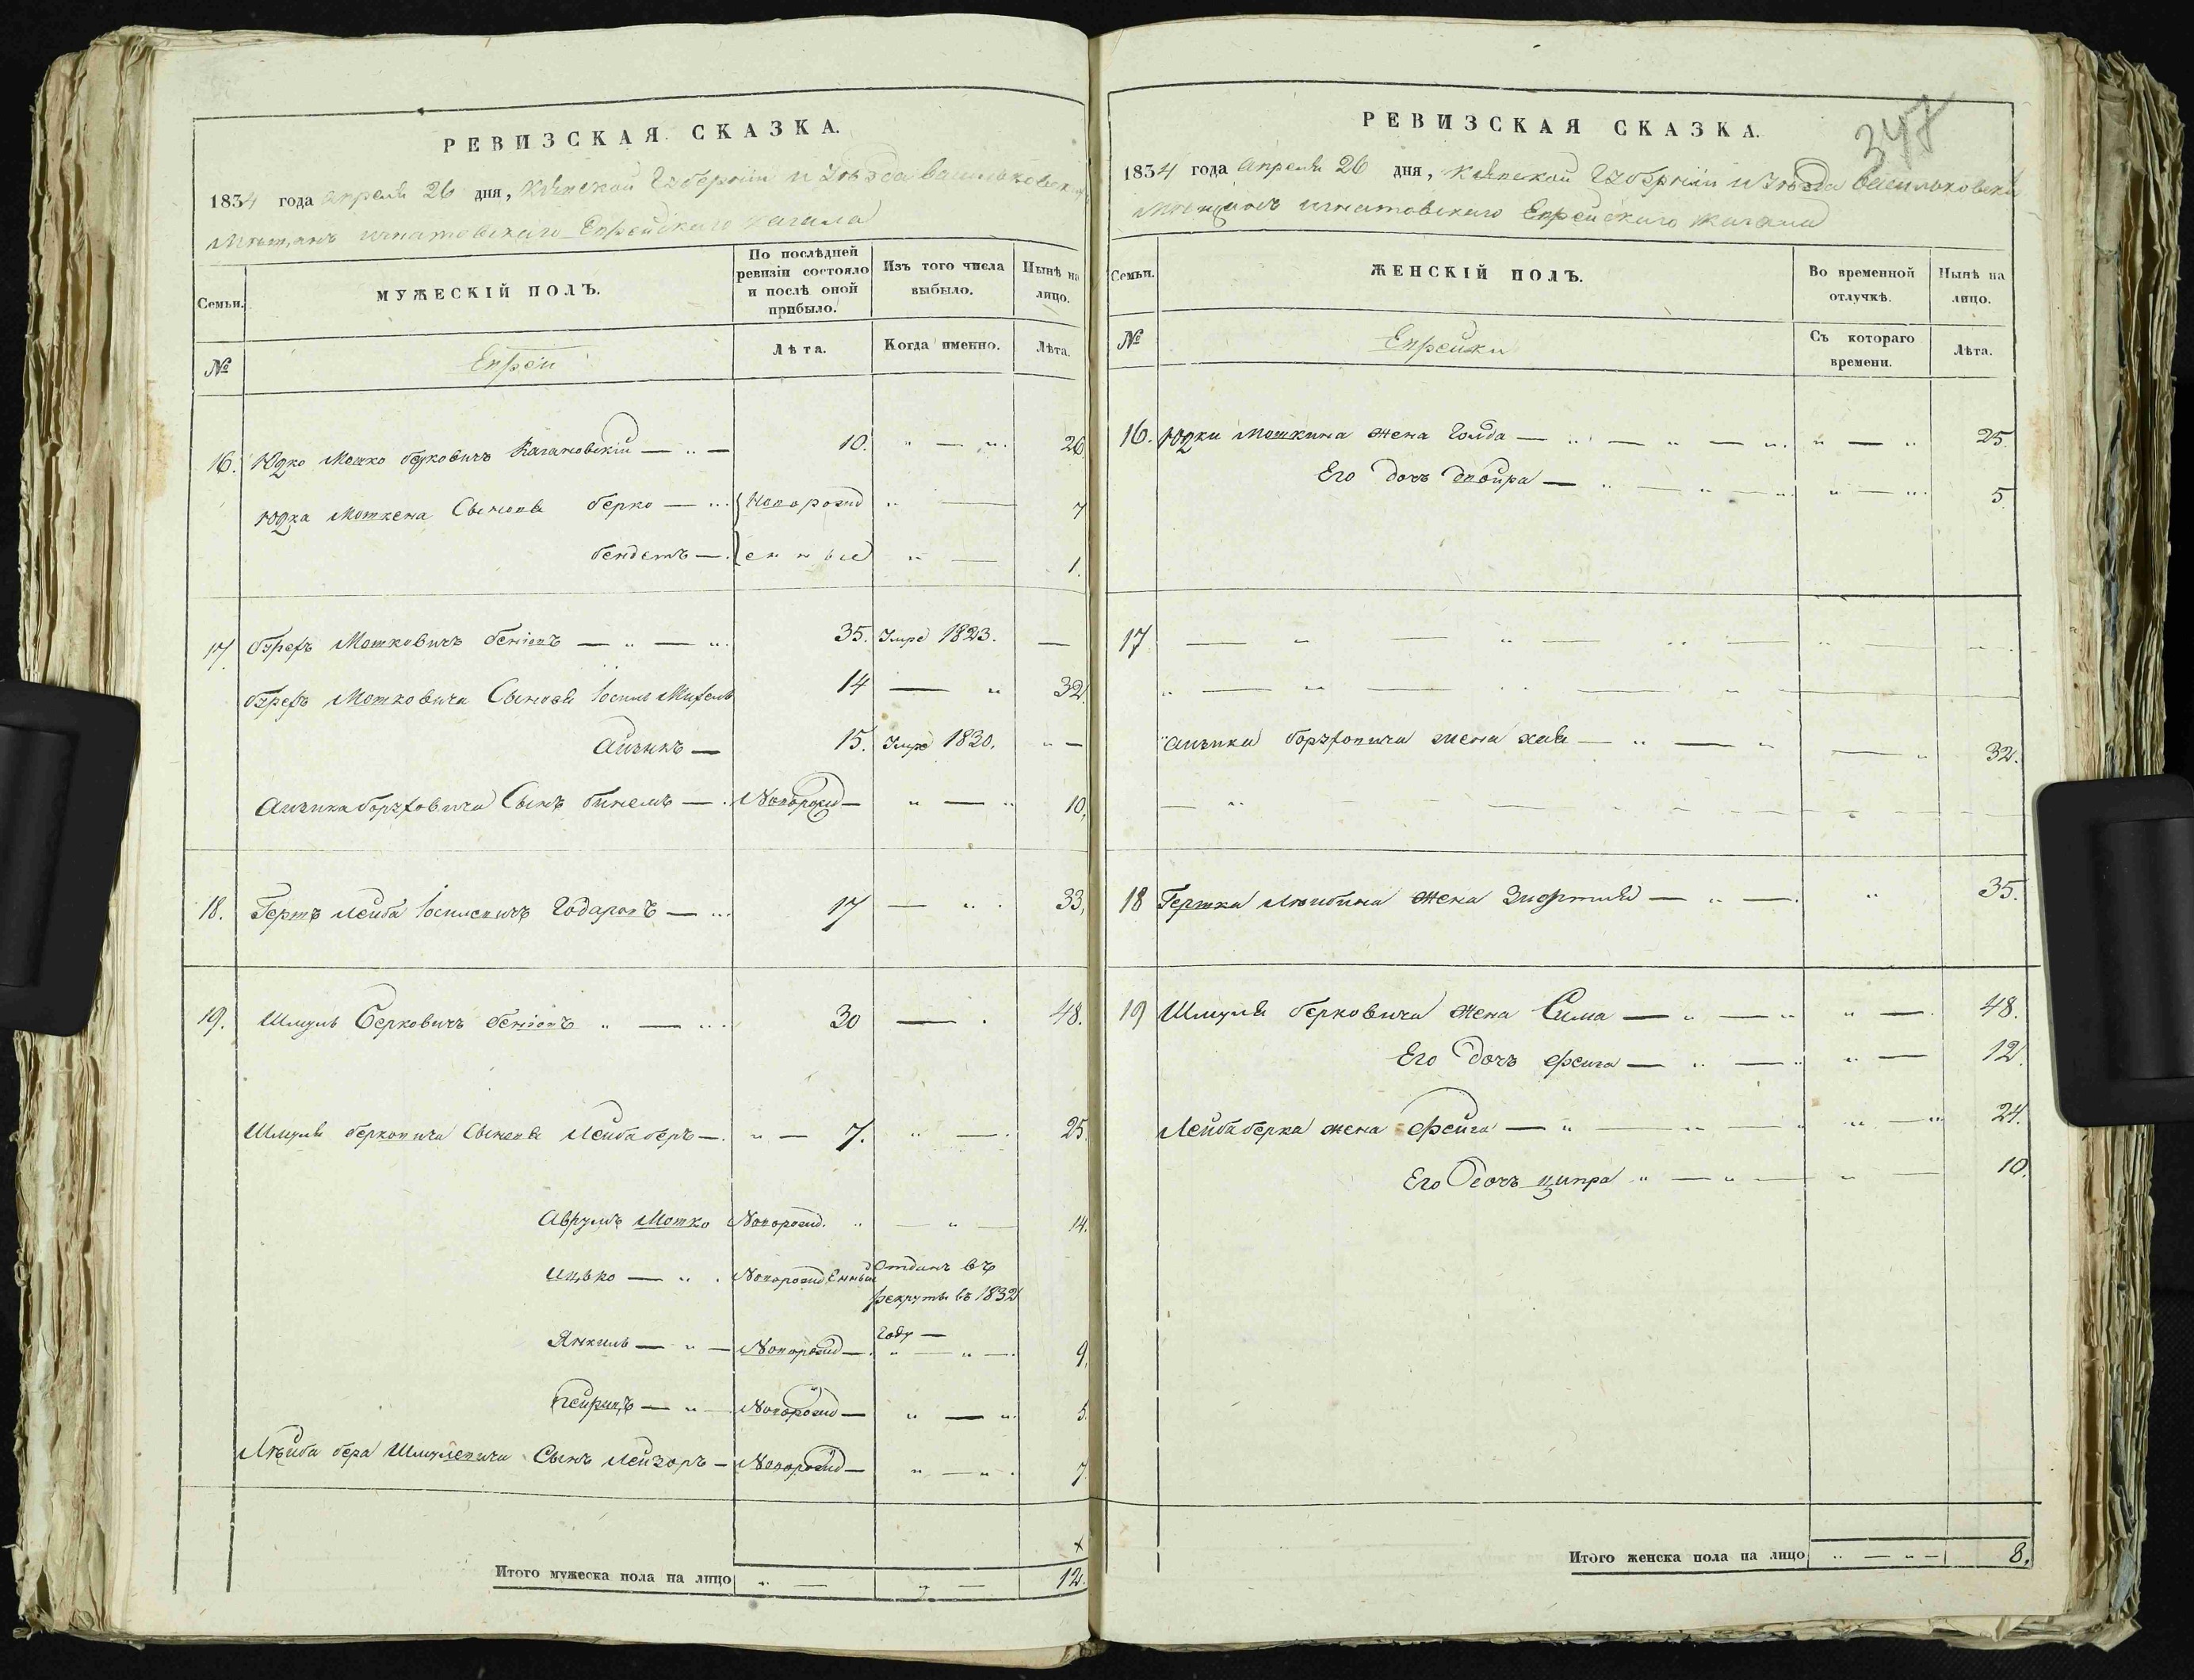 РЕВИЗСКАЯ СКАЗКА.
1834 года апреля 26 дня, Кіевской Губерніи и Уѣзда Васильковского
Мѣщанъ игнатовскаго Еврейскаго кагала
Семьи.
МУЖЕСКІЙ ПОЛЪ.
По послѣдней ревизіи состояло и послѣ оной прибыло.
Изъ того числа выбыло.
Нынѣ на лицо.
№
Евреи
Лѣта.
Когда именно.
Лѣта.
16. Юдко Мошко берковичъ Кагановскій — „ — 10. „ — „ 26
Юдка Мошкена Сыновя берко — „ Новорожд „ — 7
бендетъ — енные „ — 1.
17 Мошковичъ — „ — „ 35. Умре 1823. —
Мошковича Сыновя Іосипъ 14 — „ 32
Айзикъ — 15. Умре 1830. „ —
Аизика Сынъ — Новорожд — „ — „ 10,
18. Гершъ лейба — „ 17 — „ 33,
19. Шмуль Берковичъ „ — „ 30 — 48.
Шмуля берковича Сыновя Лейба беръ — „ — 7. „ — 25
Аврумъ Мошко Новорожд. „ — „ — 14.
Ицько — „ Новорожденный Отданъ въ
рекруты въ 1832
Году —
Янкиль — „ — Новорожд — „ — „ — 9,
— „ — Новорожд — „ — „ 5.
Лейба бера Шмулевича Сынъ Лейзоръ — Новорожд — „ — „ 7
Итого мужеска пола на лицо „ — „ — 12.
347
РЕВИЗСКАЯ СКАЗКА.
1834 года апреля 26 дня, Кіевской Губерніи и Уѣзда Васильковска
Мѣщанъ игнатовскаго Еврейскаго кагала
Семьи.
ЖЕНСКІЙ ПОЛЪ.
Во временной отлучкѣ.
Нынѣ на лицо.
№
Еврейки
Съ котораго времени.
Лѣта.
16. Юдки Мошкина жена Голда — „ — „ — „ „ — „ 25.
Его дочь двойра — „ — „ — „ „ — „ 5
17 — „ — „ — „ —
Аизика жена хая — „ — „ — „ 32.
18 Гершка жена — „ — „ 35.
19 Шмуля берковича жена Сима — „ — „ „ — 48.
Его дочь фейга — „ — „ „ — 12.
Лейба берка жена фейга — „ — „ — „ „ — „ 24.
Его дочь ципра „ — „ — „ — 10.
Итого женска пола на лицо „ — „ — 8.